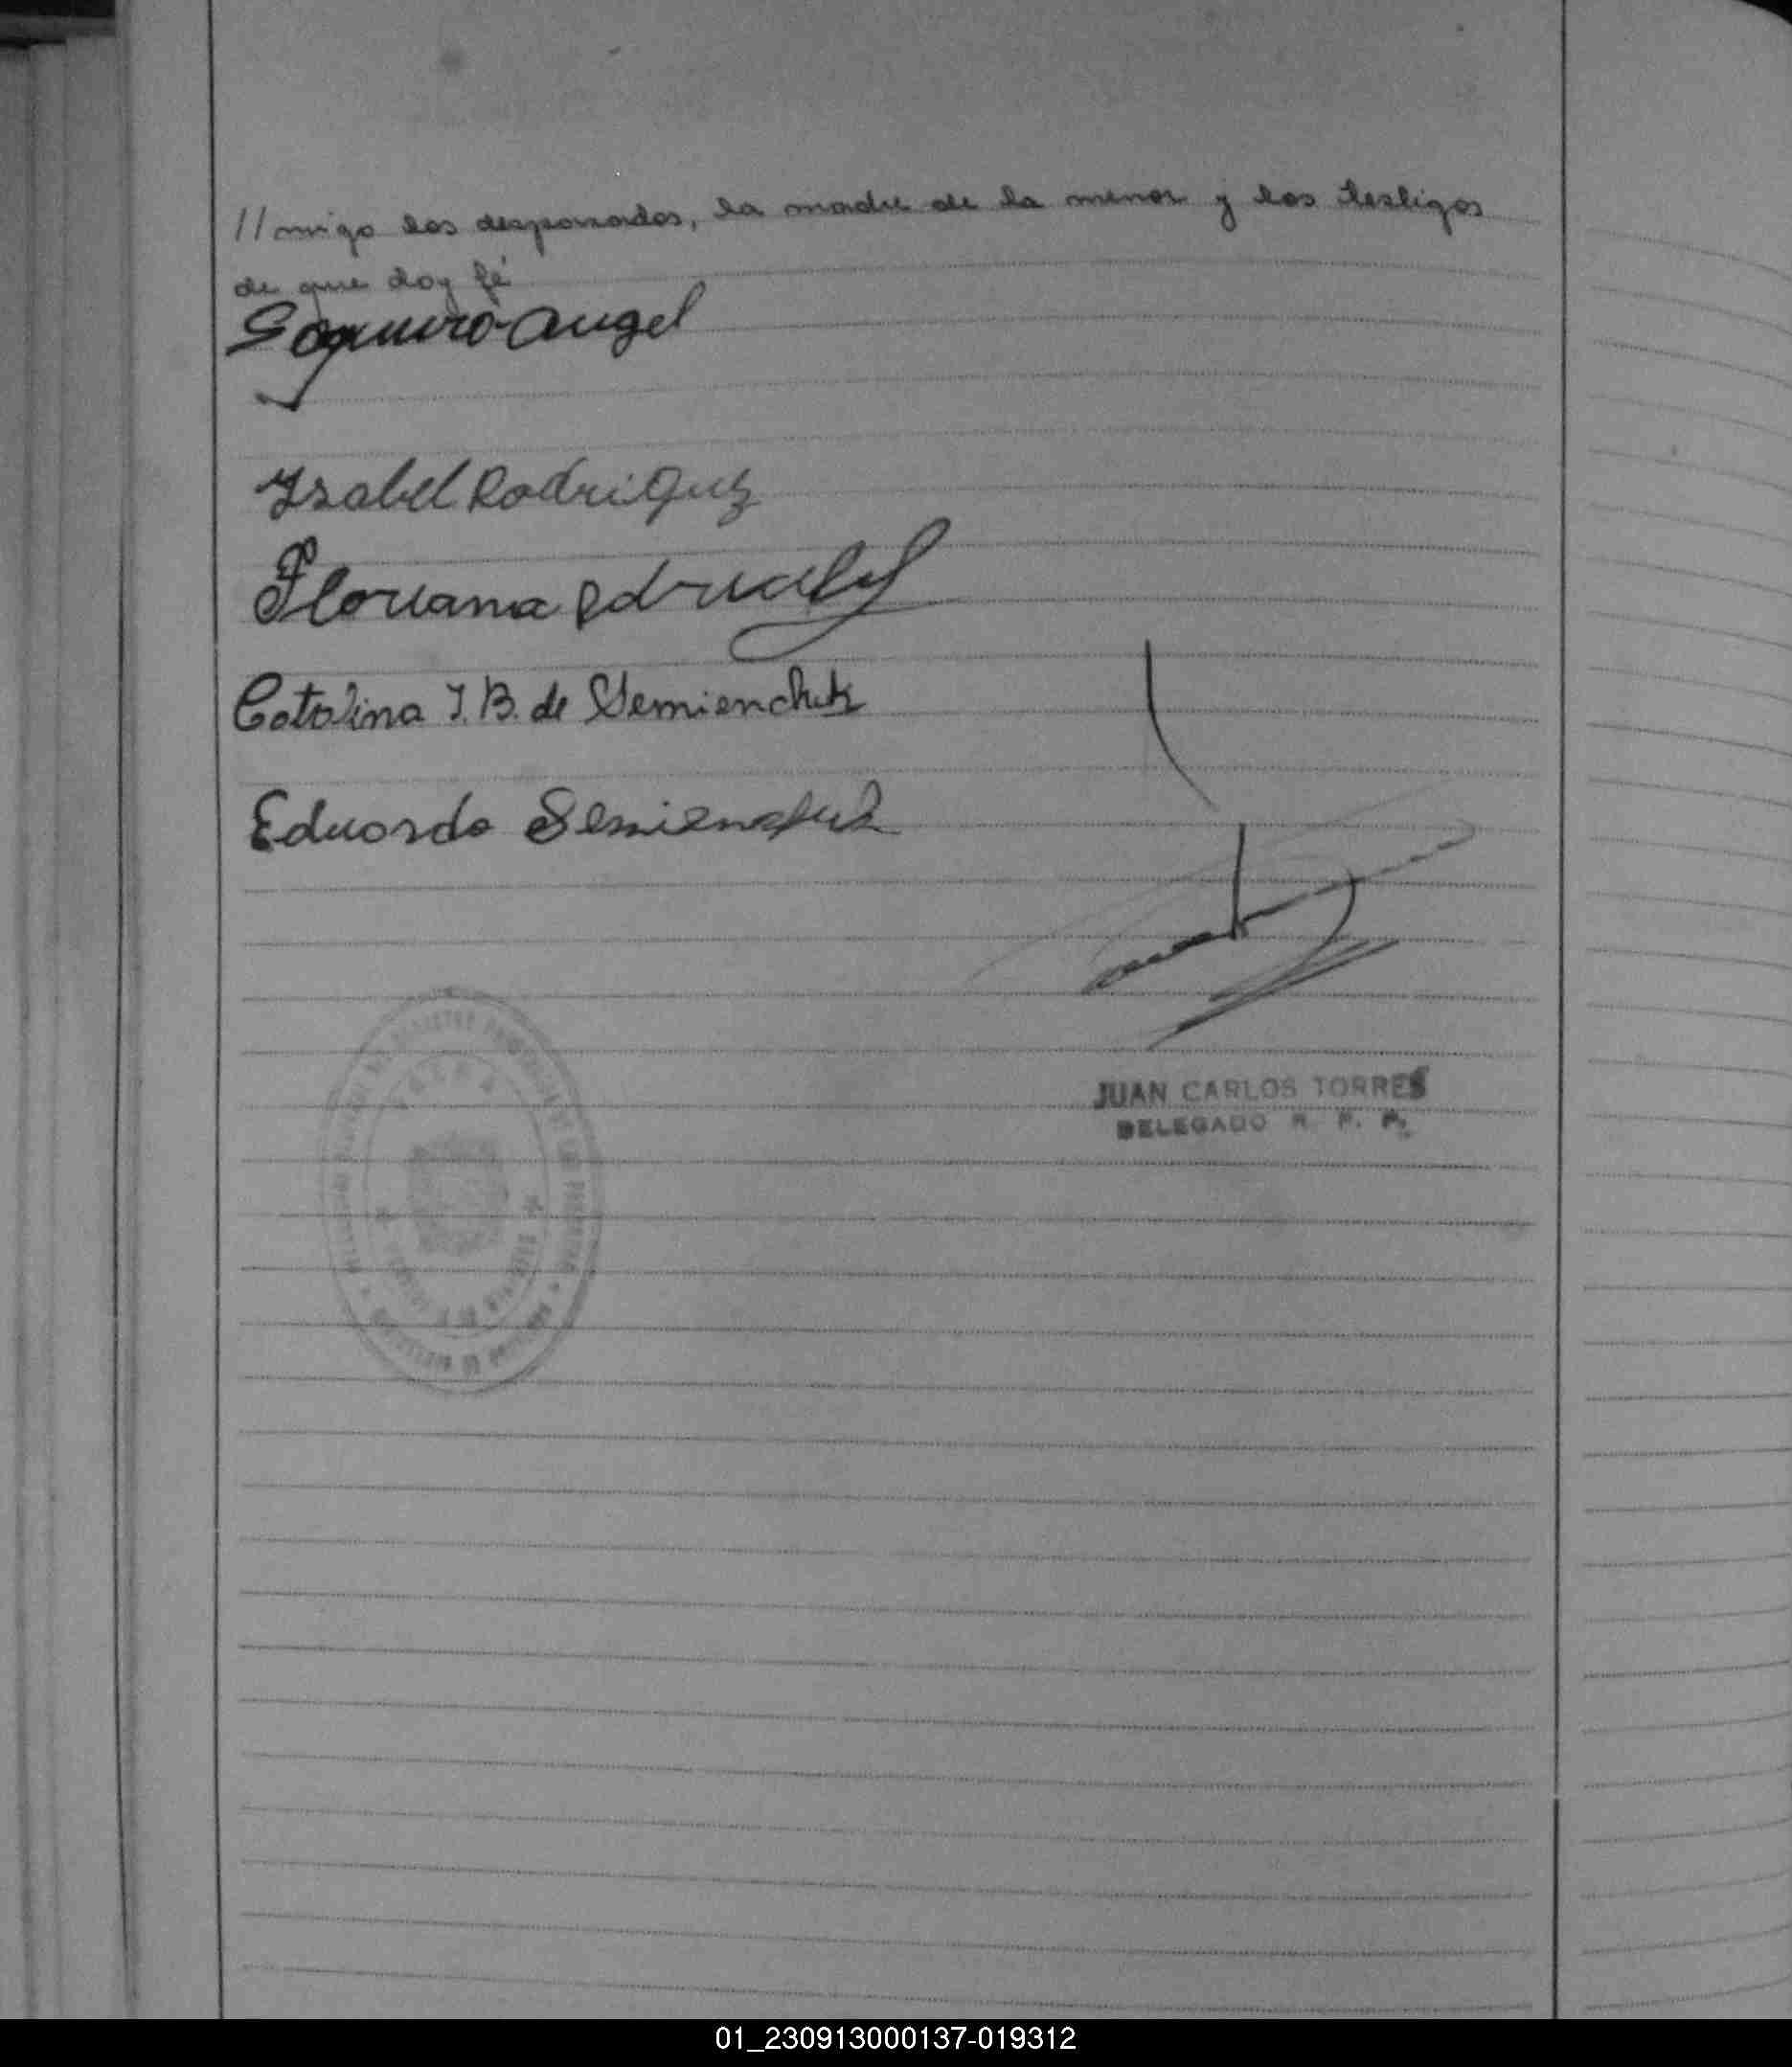 //migo los desposados, la madre de la menor y los testigos
de que doy fé
Angel
Isabel Rodriguez
Floriana
Catalina I. B. de Semienchuk
Eduardo Semienchuk
JUAN CARLOS TORRES
DELEGADO R. P. P.
01_230913000137-019312